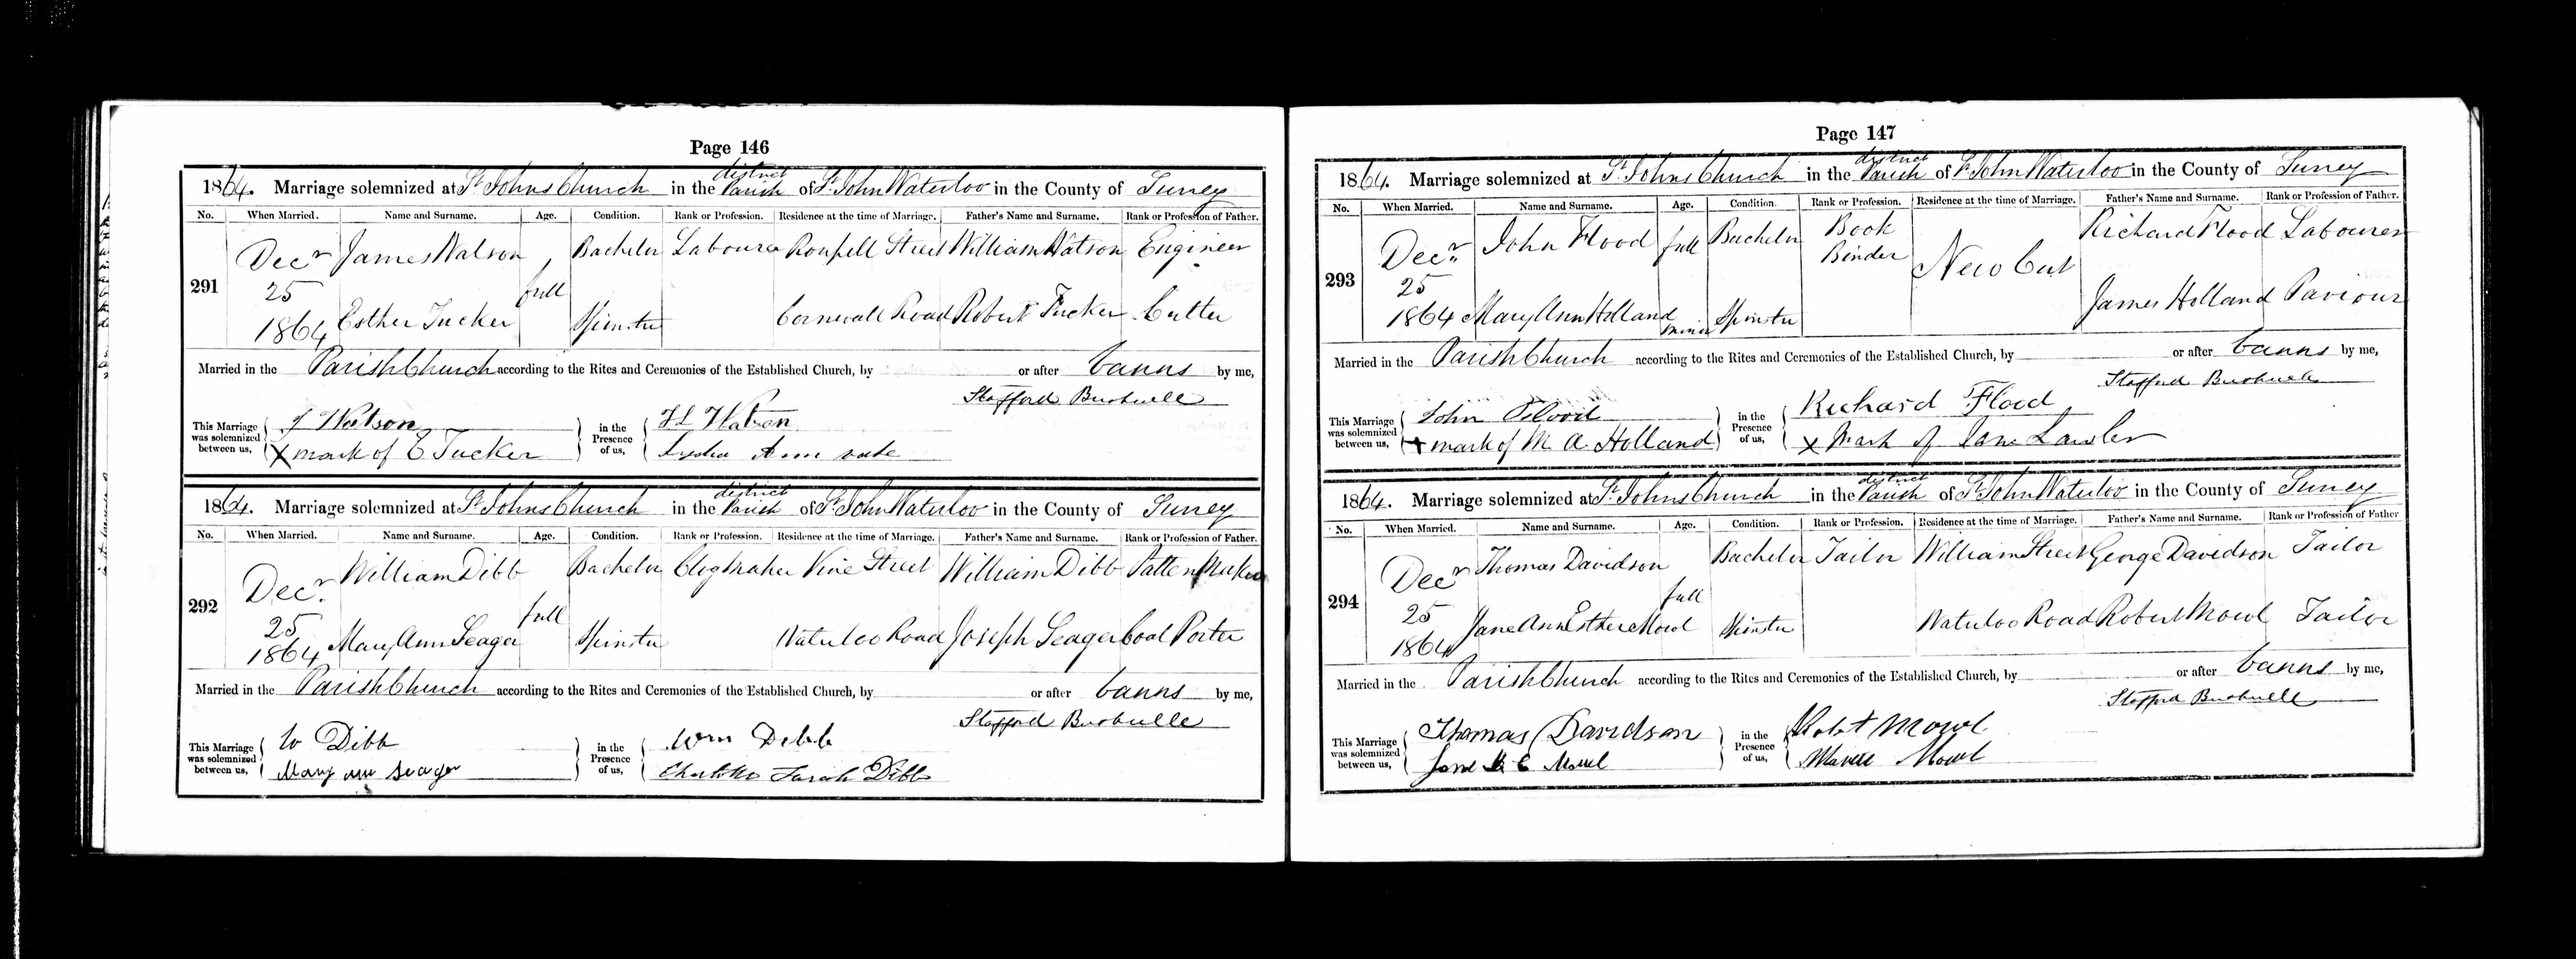 Page 146
1864. Marriage solemnized at St Johns Church in the district Parish of St John Waterloo in the County of Surrey
No. When Married. Name and Surname. Age. Condition. Rank or Profession. Residence at the time of Marriage. Father's Name and Surname. Rank or Profession of Father.
291 Decr 25 1864 James Watson full Bachelor Labourer Roupell Street William Watson Engineer
Esther Tucker Spinster Cornwall Road Robert Tucker Cutter
Married in the Parish Church according to the Rites and Ceremonies of the Established Church, by or after banns by me,
Stafford Bushnell
This Marriage was solemnized between us, J Watson in the Presence of us, Watson
X mark of E Tucker Lydia Ann
1864. Marriage solemnized at St Johns Church in the district Parish of St John Waterloo in the County of Surrey
No. When Married. Name and Surname. Age. Condition. Rank or Profession. Residence at the time of Marriage. Father's Name and Surname. Rank or Profession of Father.
292 Decr. 25 1864 William Dibb full Bachelor Clogmaker Vine Street William Dibb Patten Maker
Mary Ann Seager Spinster Waterloo Road Joseph Seager Coal Porter
Married in the Parish Church according to the Rites and Ceremonies of the Established Church, by or after banns by me,
Stafford Bushnell
This Marriage was solemnized between us, W Dibb in the Presence of us, Wm Dibb
Mary ann Seager Charlotte Sarah Dibb
Page 147
1864. Marriage solemnized at St Johns Church in the district Parish of St John Waterloo in the County of Surrey
No. When Married. Name and Surname. Age. Condition. Rank or Profession. Residence at the time of Marriage. Father's Name and Surname. Rank or Profession of Father.
293 Decr. 25 1864 John Flood full Bachelor Book Binder New Cut Richard Flood Labourer
Mary Ann Holland minor Spinster James Holland Paviour
Married in the Parish Church according to the Rites and Ceremonies of the Established Church, by or after banns by me,
Stafford Bushnell
This Marriage was solemnized between us, John Flood in the Presence of us, Richard Flood
X mark of M A Holland X Mark of Jane Lawler
1864. Marriage solemnized at St Johns Church in the district Parish of St John Waterloo in the County of Surrey
No. When Married. Name and Surname. Age. Condition. Rank or Profession. Residence at the time of Marriage. Father's Name and Surname. Rank or Profession of Father
294 Decr 25 1864 Thomas Davidson full Bachelor Tailor William Street George Davidson Tailor
Jane Ann Esther Mowl Spinster Waterloo Road Robert Mowl Tailor
Married in the Parish Church according to the Rites and Ceremonies of the Established Church, by or after banns by me,
Stafford Bushnell
This Marriage was solemnized between us, Thomas Davidson in the Presence of us, Robt Mowl
Jane E Mowl Mowl